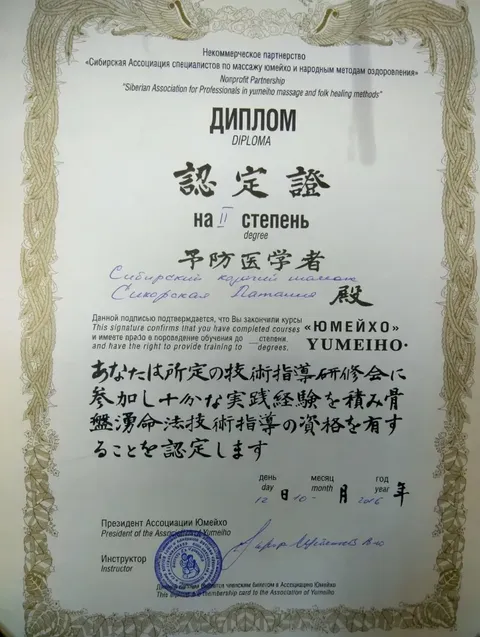 Некоммерческое партнерство
«Сибирская Ассоциация специалистов по массажу юмейхо и народным методам оздоровления»
Nonprofit Partnership
"Siberian Association for Professionals in yumeiho massage and folk healing methods"
ДИПЛОМ
DIPLOMA
認定證
на II степень
degree
予防医学者
Сибирский
Сикорская Наталия 殿
Данной подписью подтверждается, что Вы закончили курсы
This signature confirms that you have completed courses
и имеете право в пороведение обучения до __степени.
and have the right to provide training to degrees.
«ЮМЕЙХО»
YUMEIHO·
あなたは所定の技術指導研修会に
参加し十分な実践経験を積み骨
盤湧命法技術指導の資格を有す
ることを認定します
день месяц год
day month year
12 日 10 月 2016 年
Президент Ассоциации Юмейхо
President of the Association of Yumeiho
Инструктор
Instructor
является членским билетом в Ассоциацию Юмейхо
This diploma is a membership card to the Association of Yumeiho